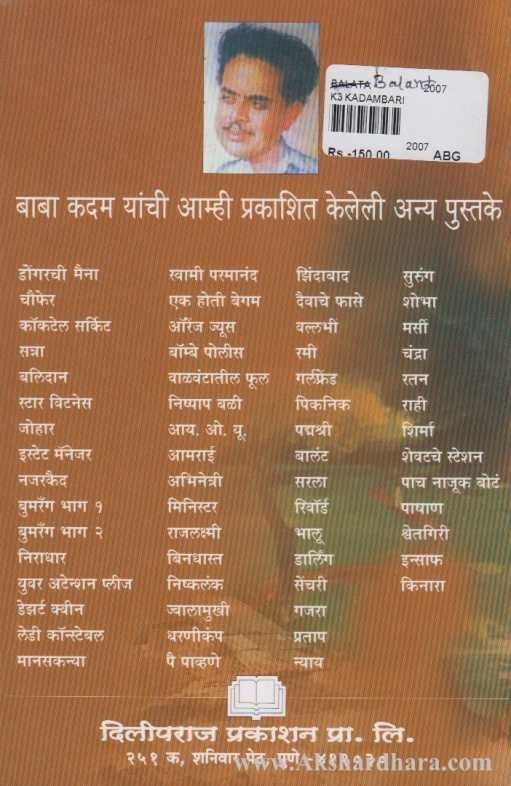 BALATA Balant 2007
K3 KADAMBARI
Rs.-150.00 2007 ABG
बाबा कदम यांची आम्ही प्रकाशित केलेली अन्य पुस्तके
डोंगरची मैना
चौफेर
कॉकटेल सर्किट
सत्रा
बलिदान
स्टार विटनेस
जोहार
इस्टेट मॅनेजर
नजरकैद
बुमरँग भाग १
बुमरँग भाग २
निराधार
युवर अटेन्शन प्लीज
डेझर्ट क्वीन
लेडी कॉन्स्टेबल
मानसकन्या
स्वामी परमानंद
एक होती बेगम
ऑरेंज ज्यूस
बॉम्बे पोलीस
वाळवंटातील फूल
निष्पाप बळी
आय. ओ. यू.
आमराई
अभिनेत्री
मिनिस्टर
राजलक्ष्मी
बिनधास्त
निष्कलंक
ज्वालामुखी
धरणीकंप
पै पाव्हणे
झिंदाबाद
दैवाचे फासे
वल्लभी
रमी
गर्लफ्रेंड
पिकनिक
पद्मश्री
बालंट
सरला
रिवॉर्ड
भालू
डार्लिंग
सेंचरी
गजरा
प्रताप
न्याय
सुरुंग
शोभा
मर्सी
चंद्रा
रतन
राही
शिर्मा
शेवटचे स्टेशन
पाच नाजूक बोटं
पाषाण
श्वेतगिरी
इन्साफ
किनारा
दिलीपराज प्रकाशन प्रा. लि.
२५१ क, शनिवार पेठ, पुणे
www.Akshardhara.com